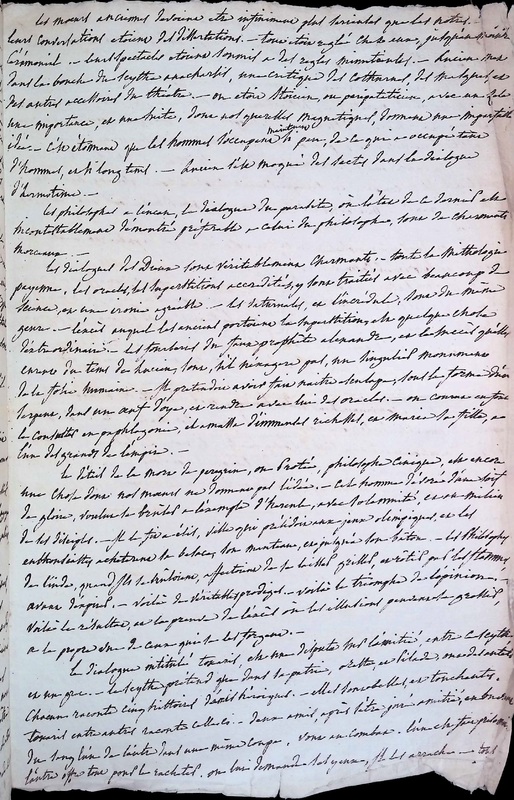 les mœurs anciennes devoient être infiniment plus serviles que les nôtres. –
leurs conversations étoient des dissertations. – tout étoit réglé chez eux, jusqu'au
cérémonial – leurs spectacles étoient soumis à des règles minutantes. – Lucien met
dans la bouche du scythe anacharsis, une critique des cothurnes, des masques, et
des autres accessoires du théatre. – on étoit stoïcien, ou péripatéticien, avec une
une importance, et une suite, dont nos querelles magnétiques, donnent une imparfaite
idée. – il est étonnant que les hommes s'occupent maintenant si peu, de ce qui a occupé tant
d'hommes, et si longtems. – Lucien s'est moqué des sectes dans le dialogue
d'hermotime. –
les philosophes à l'encan, le dialogue du parasite, où l'état de ce dernier est
incontestablement démontré préférable à celui du philosophe, sont de charmants
morceaux. –
les dialogues des Dieux sont véritablement charmants. – toute la mythologie
payenne, les oracles, les superstitions accréditées, y sont traités avec beaucoup de
science, et une ironie agréable. – les infernales, et l'incrédule, sont du même
genre. – l'excès auquel les anciens portoient la superstition, a quelque chose
d'extraordinaire. – les fourberies du faux prophète alexandre, et le succès qu'elles
eurent du tems de lucien, sont, s'il n'exagère pas, un singulier monument
de la folie humaine. – il prétendit avoir fait naître Esculape, sous la forme d'un
serpent, dans un œuf d'oye, et rendre avec lui des oracles. – on courut en foule
le consulter en paphlagonie, il amassa d'immenses richesses, et maria sa fille, à
l'un des grands de l'empire. –
le détail de la mort de peregrin, ou Protée, philosophe Cinique, est encor
une chose dont nos mœurs ne donnent pas l'idée. – cet homme d'ivre d'une soif
de gloire, voulut se brûler à l'exemple d'hercule, avec solemnité, et au milieu
de ses disciples. – il le fit à elis, ville qui présidoit aux jeux olimpiques, et les
enthousiastes achetèrent sa besace, son manteau, et jusqu'à son bâton. – les philosophes
de l'inde, quand ils se brûloient, affectoient de se laisser griller, et rôtir par les flammes
avant d'expirer. – voilà de véritables prodiges. – voilà le triomphe de l'opinion. –
voilà le résultat, et la preuve de l'excès où les illusions peuvent grossir,
à le propre vue de ceux qui se les forgent. –
le dialogue intitulé toxaris, est une dispute sur l'amitié entre un scythe
et un grec. – le scythe prétend que dans sa patrie, oreste, et Pilade, ont des autels
chacun raconte cinq histoires d'amis héroïques. – elles sont belles, et touchantes.
toxaris entre autres raconte celle-ci. – deux amis, après s'être juré amitié, en buvant
du sang l'un de l'autre dans une même coupe, vont au combat. l'un est fait prisonnier
l'autre offre tout pour le racheter, on lui demande ses yeux, il les arrache – tous